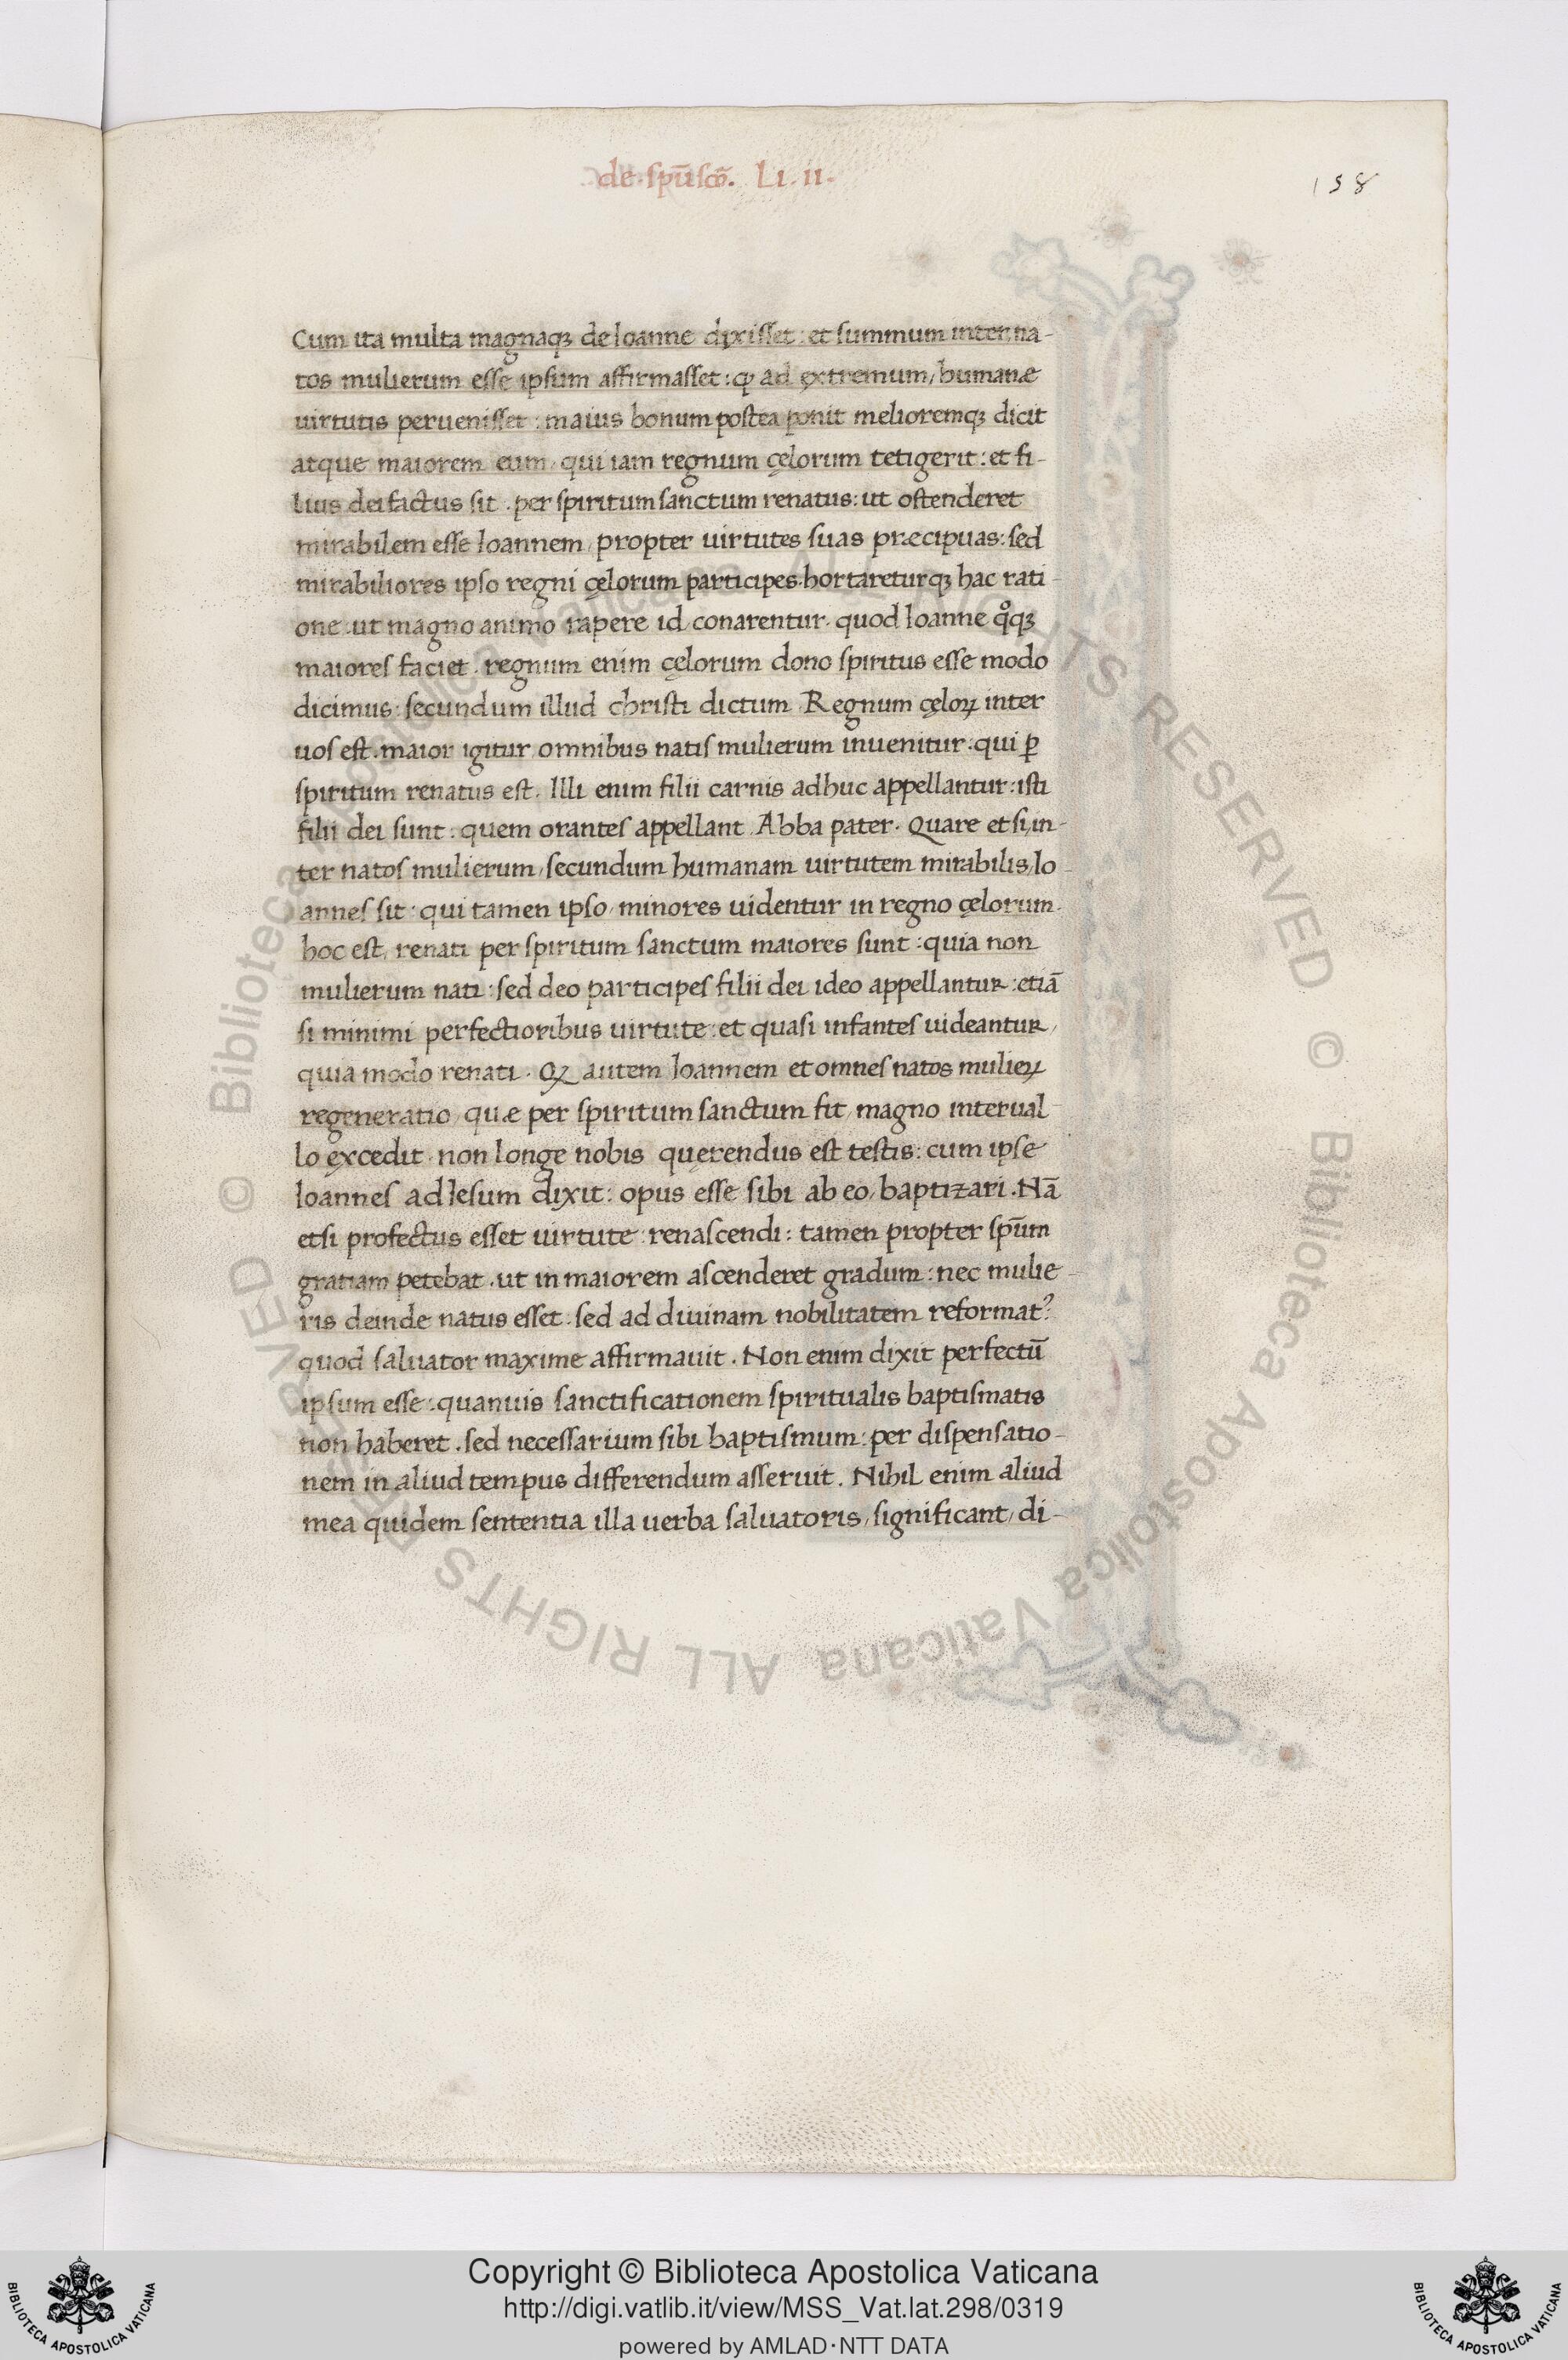 de. spū scō. Li. ii.
158
Cum ita multa magnaqꝫ de Ioanne dixisset: et summum inter na-
tos mulierum esse ipsum affirmasset: ꝙ ad extremum, humanæ
uirtutis peruenisset: maius bonum postea ponit melioremqꝫ dicit
atque maiorem eum, qui iam regnum cęlorum tetigerit: et fi-
lius dei factus sit. per spiritum sanctum renatus: ut ostenderet
mirabilem esse Ioannem, propter uirtutes suas præcipuas: sed
mirabiliores ipso regni cęlorum participes. hortareturqꝫ hac rati-
one. ut magno animo rapere id conarentur. quod Ioanne qͦqꝫ
maiores faciet. regnum enim cęlorum dono spiritus esse modo
dicimus: secundum illud christi dictum. Regnum cęloꝝ inter
uos est. maior igitur omnibus natis mulierum inuenitur: qui ꝑ
spiritum renatus est. Illi enim filii carnis adhuc appellantur: isti
filii dei sunt: quem orantes appellant Abba pater. Quare et si, in-
ter natos mulierum, secundum humanam uirtutem mirabilis, Io-
annes sit: qui tamen ipso, minores uidentur in regno cęlorum.
hoc est, renati per spiritum sanctum maiores sunt: quia non
mulierum nati: sed deo participes filii dei ideo appellantur: etiā
si minimi perfectioribus uirtute: et quasi infantes uideantur,
quia modo renati. Qꝫ autem Ioannem et omnes natos mulieꝝ
regeneratio, quæ per spiritum sanctum fit, magno interual-
lo excedit. non longe nobis quęrendus est testis: cum ipse
Ioannes ad Iesum dixit: opus esse sibi ab eo, baptizari. Nā
etsi profectus esset uirtute: renascendi: tamen propter spūm
gratiam petebat. ut in maiorem ascenderet gradum: nec mulie-
ris deinde natus esset. sed ad diuinam nobilitatem reformat᾽:
quod saluator maxime affirmauit. Non enim dixit perfectū
ipsum esse: quanuis sanctificationem spiritualis baptismatis
non haberet. sed necessarium sibi baptismum: per dispensatio-
nem in aliud tempus differendum asseruit. Nihil enim aliud
mea quidem sententia illa uerba saluatoris, significant, di-
© Biblioteca Apostolica Vaticana ALL RIGHTS RESERVED © Biblioteca Apostolica Vaticana ALL RIGHTS RESERVED
Copyright © Biblioteca Apostolica Vaticana
http://digi.vatlib.it/view/MSS_Vat.lat.298/0319
powered by AMLAD·NTT DATA
BIBLIOTECA APOSTOLICA VATICANA
BIBLIOTECA APOSTOLICA VATICANA